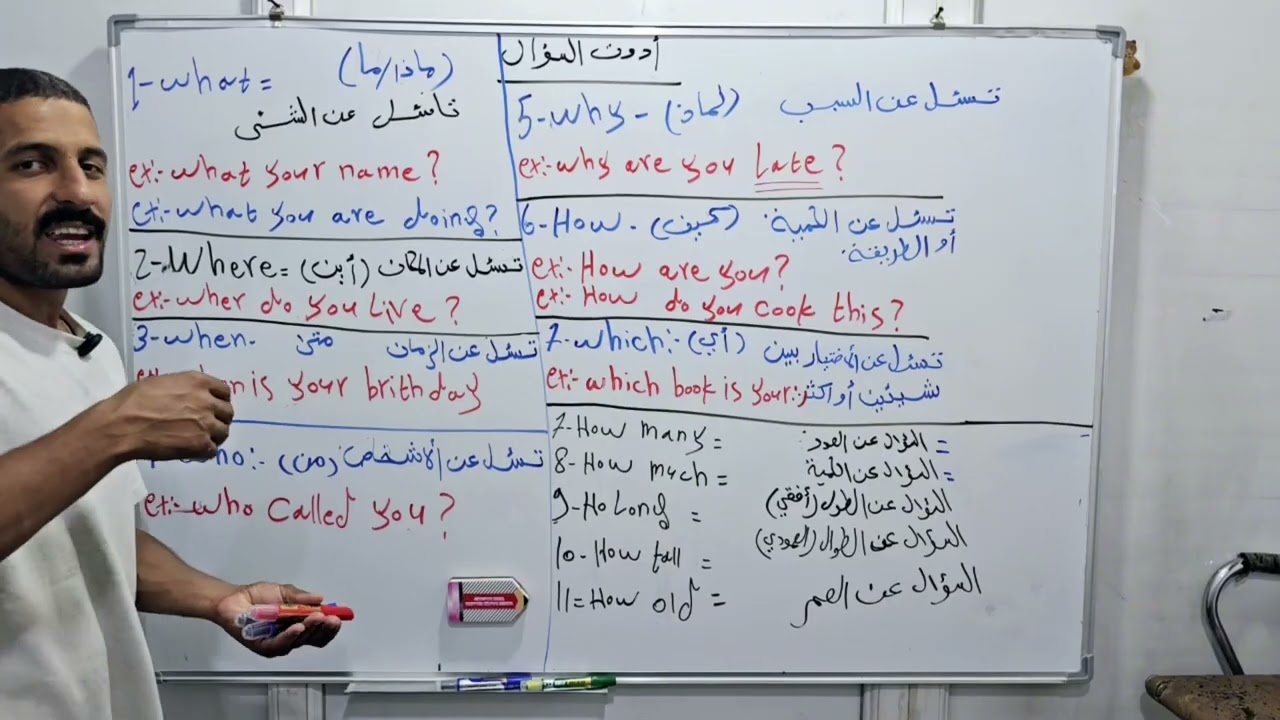 أدوت السؤال
1-what = (ماذا/ما)
تاسئل عن الشئى
ex:- what your name?
ex:- what you are doing?
2-Where = (أين) تسئل عن المكان
ex:- wher do you Live?
3-when- متى تسئل عن الزمان
is your brithday
تسئل عن الأشخاص (من)
ex:- who called you?
5-why - (لماذ) تسئل عن السبب
ex:- why are you Late?
6-How - (كيف) تسئل عن الكمية
أو الطريقة
ex:- How are you?
ex:- How do you cook this?
7-which:- (أي) تسئل عن الأختيار بين
شيئين أو اكثر
ex:- which book is your
7-How many = السؤال عن العدد =
8-How much = السؤال عن الكمية =
9-Ho Long = السؤال عن الطول (أفقي)
10-How tall = السؤال عن الطوال (العمودي)
11=How old = السؤال عن العمر